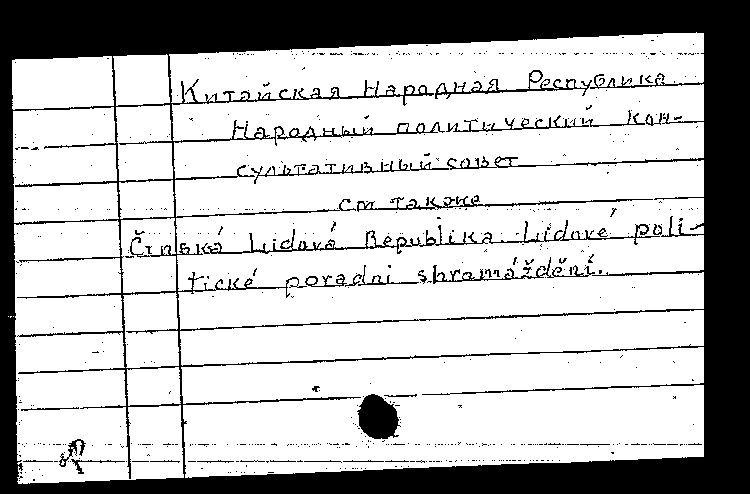 Китайская Народная Республика
Народный политический кон-
сультативный совет
см также
Čínská Lidová Republika. Lidové poli-
tické poradní shromáždění.